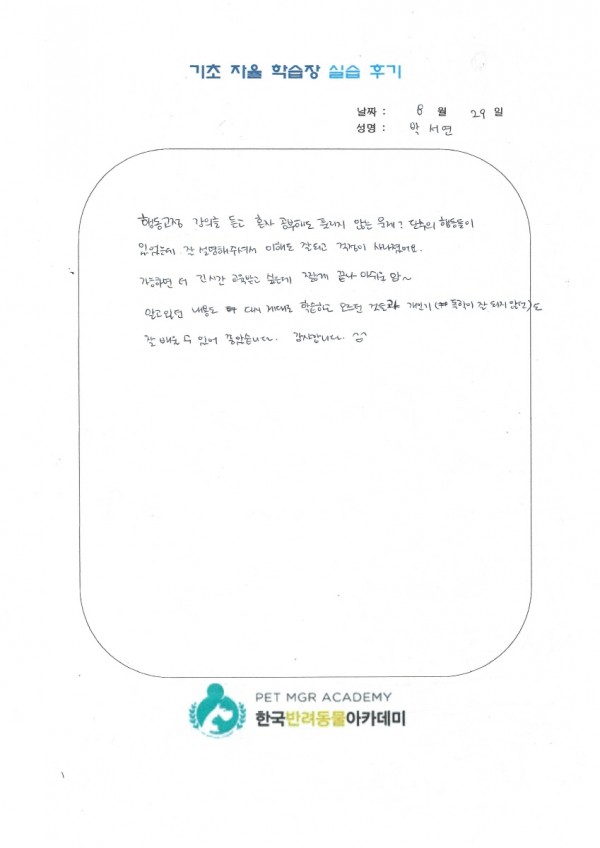 기초 자율 학습장 실습 후기
날짜 : 8 월 29 일
성명 : 박 서연
행동교정 강의를 듣고 혼자 공부해도 풀리지 않는 문제? 단추의 행동들이
있었는데 잘 설명해주셔서 이해도 잘되고 걱정이 사라졌어요.
가능하면 더 긴시간 교육받고 싶은데 짧게 끝나 아쉬운 맘~
알고있던 내용도 다시 제대로 학습하고 모르던 것들과 개인기( 폭락이 잘 되지 않던)도
잘 배울 수 있어 좋았습니다. 감사합니다. ^^
PET MGR ACADEMY
한국반려동물아카데미